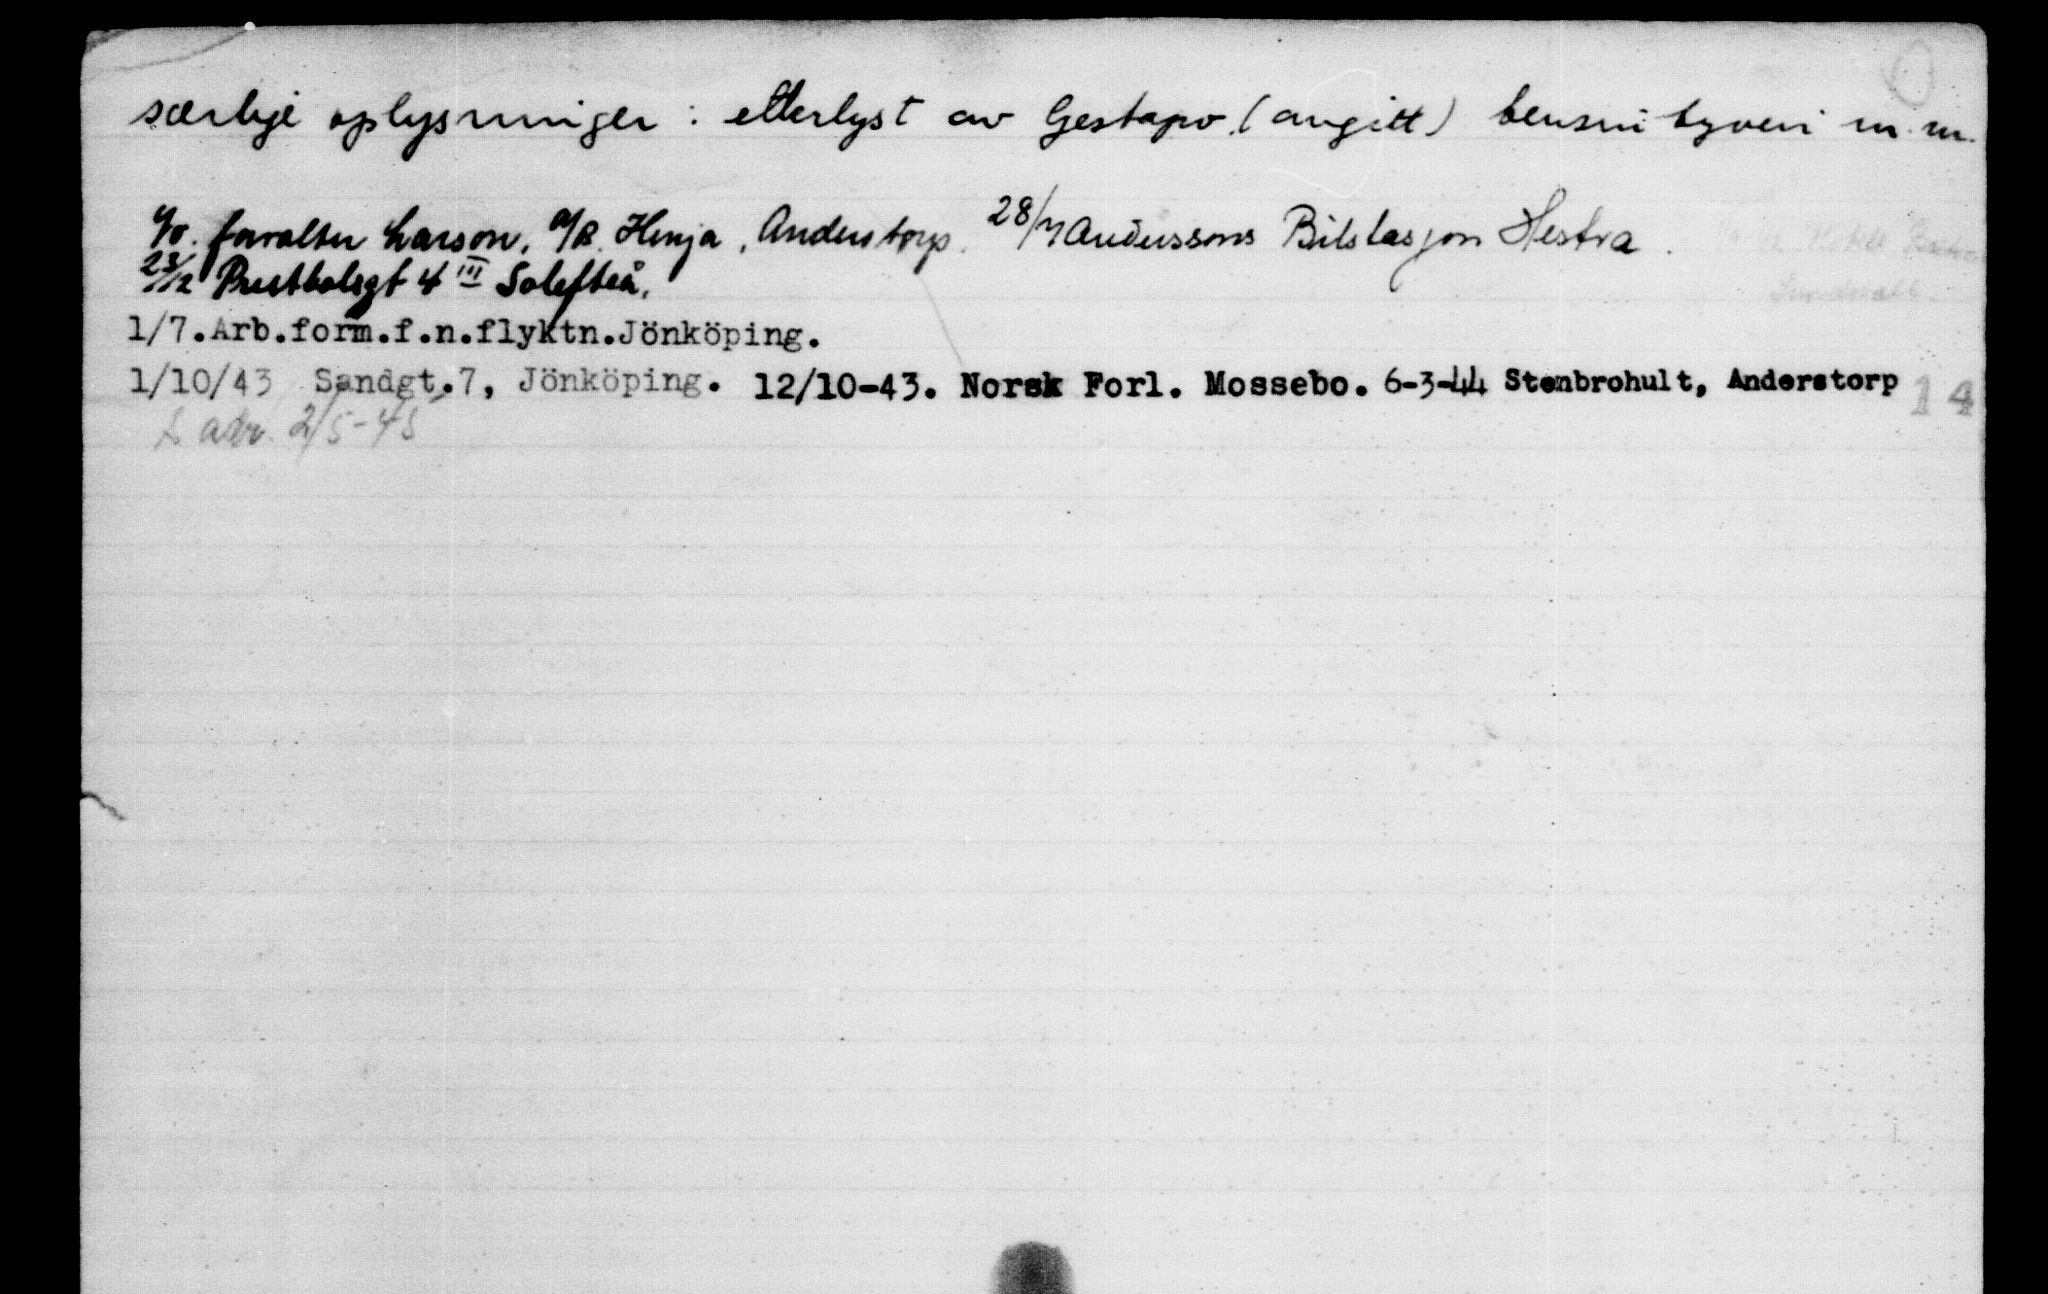 særlige oplysninger : etterlyst av Gestapo. (angitt) bensin tyveri m.m.
c/o. forvalter Larson, A/B. Henja, Anderstorp. 28/7 Anderssons Bilstasjon Hestra.
23/12 Prestbolsgt 4 III Solefteå.
1/7.Arb.form.f.n.flyktn.Jönköping.
1/10/43 Sandgt.7, Jönköping. 12/10-43. Norsk Forl. Mossebo. 6-3-44 Stenbrohult, Anderstorp 14
adr. 2/5-45